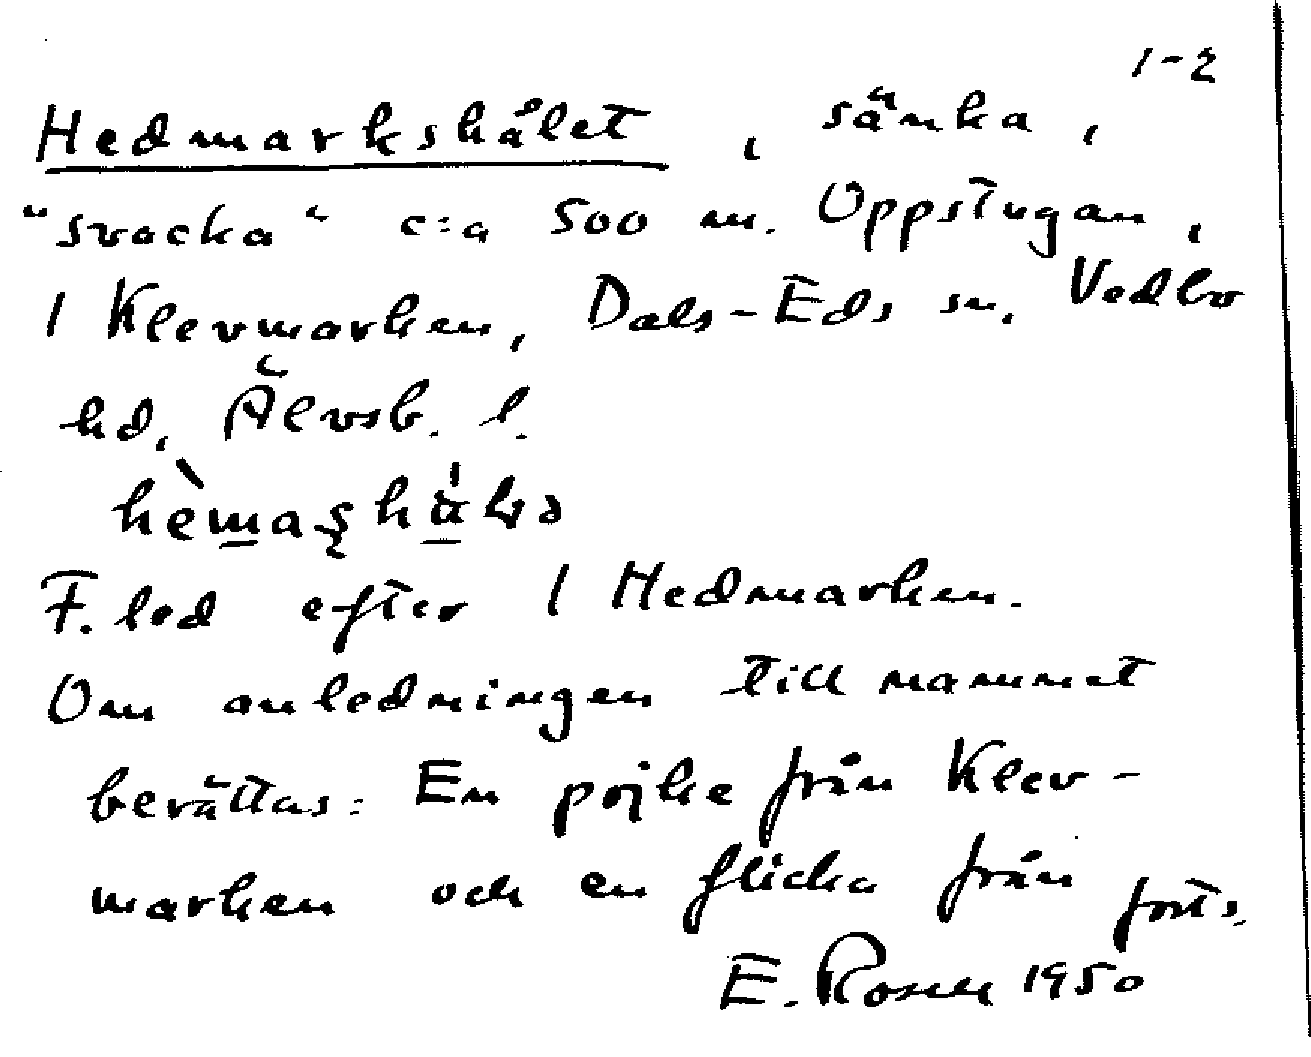 1-2
Hedmarkshålet, sänka,
"svacka" c:a 500 m. Uppstugan,
1 Klevmarken, Dals-Eds sn, Vedbo
hd, Älvsb. l.
F. led efter 1 Hedmarken.
Om anledningen till namnet
berättas: En pojke från Klev-
marken och en flicka från forts.
E. Rosell 1950